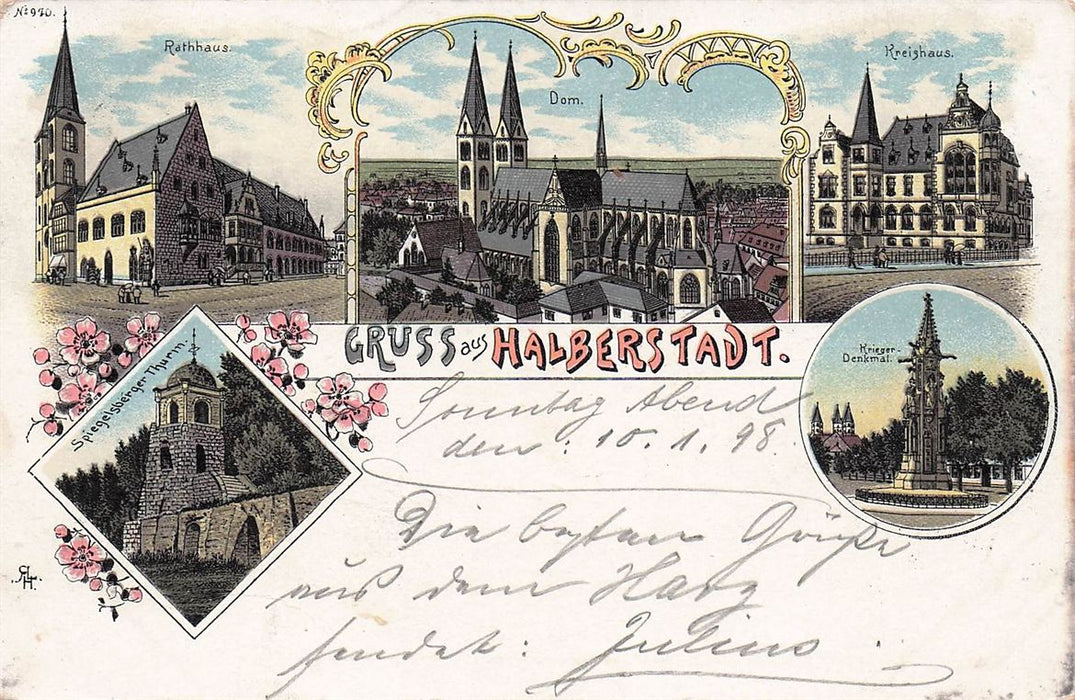 No 970.
Rathhaus.
Dom.
Kreishaus.
GRUSS aus HALBERSTADT.
Spiegelsberger Thurm.
Krieger-
Denkmal.
Sonntag Abend
den: 10.1.98.
Die besten Grüße
aus dem Harz
sendet: Julius.